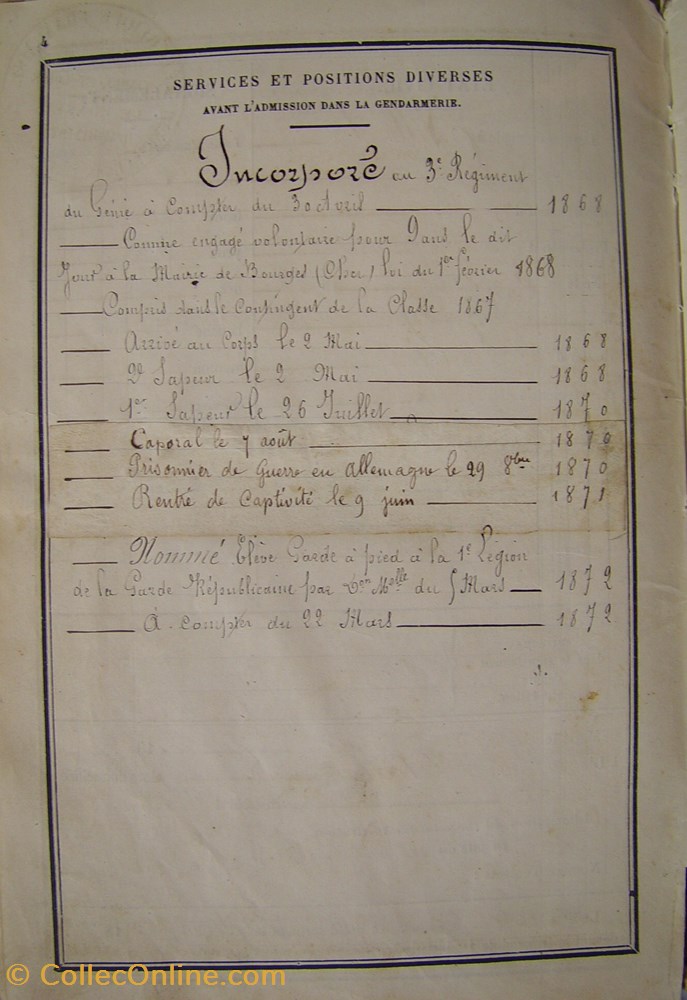 4
SERVICES ET POSITIONS DIVERSES
AVANT L'ADMISSION DANS LA GENDARMERIE.
Incorporé au 3e Régiment
du Génie à Compter du 30 Avril 1868
Comme engagé volontaire pour 9 ans le dit
Jour à la Mairie de Bourges (Cher) loi du 1er février 1868
Compris dans le Contingent de la Classe 1867
Arrivé au Corps le 2 Mai 1868
2e Sapeur le 2 Mai 1868
1er Sapeur le 26 Juillet 1870
Caporal le 7 août 1870
Prisonnier de Guerre en Allemagne le 29 8bre 1870
Rentré de Captivité le 9 juin 1871
Nommé Elève Garde à pied à la 1e Légion
de la Garde Républicaine par Don Mlle du 5 Mars 1872
À compter du 22 Mars 1872
© CollecOnline.com